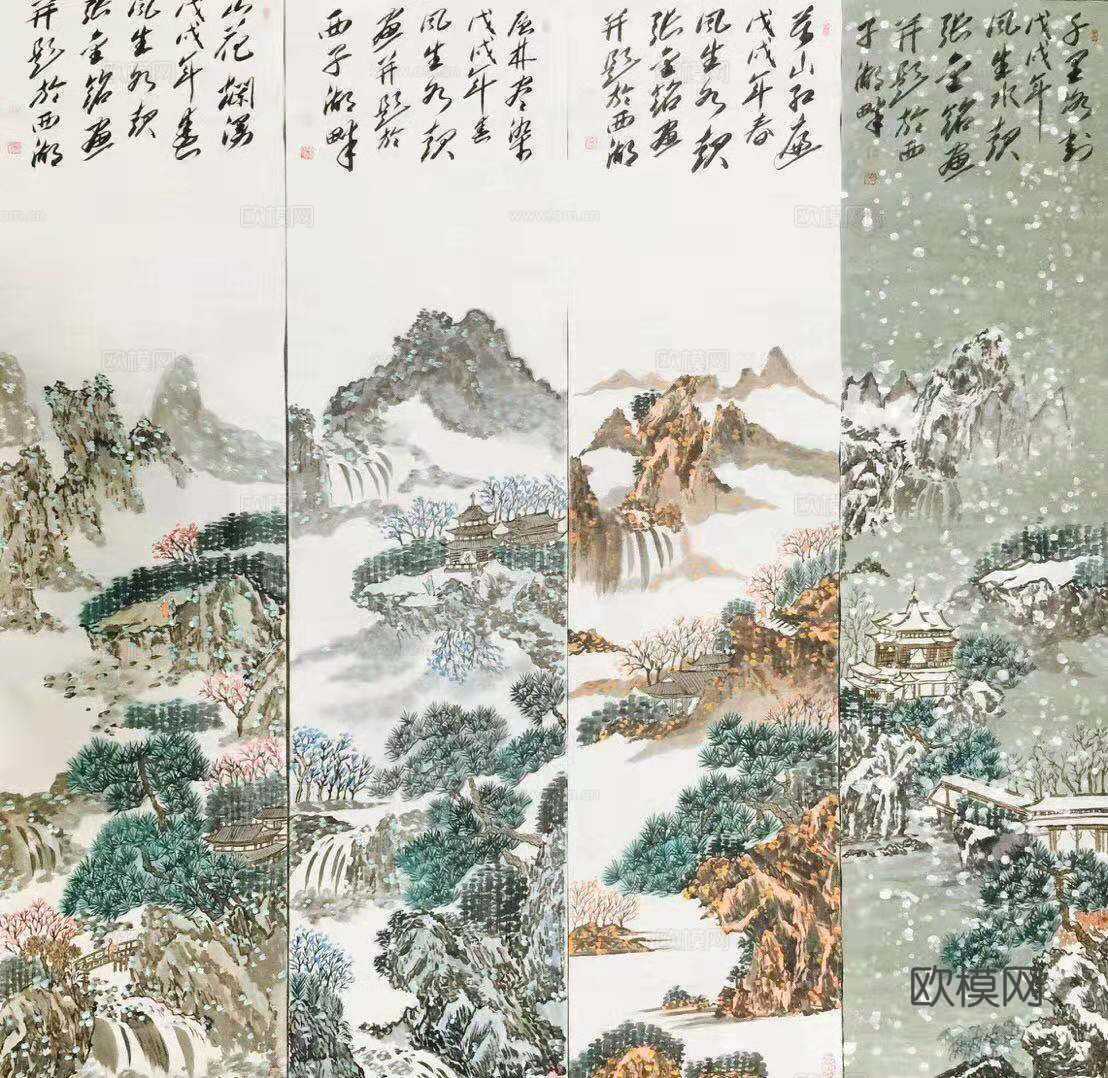 千里冰封
戊戌年
风生水起
张金铭画
并题於西
子湖畔
万山红遍
戊戌年春
风生水起
张金铭画
并题於西湖
层林尽染
戊戌年春
风生水起
画并题於
西子湖畔
山花烂漫
戊戌年春
风生水起
张金铭画
并题於西湖
欧模网
www.om.cn
欧模网
www.om.cn
欧模网
欧模网